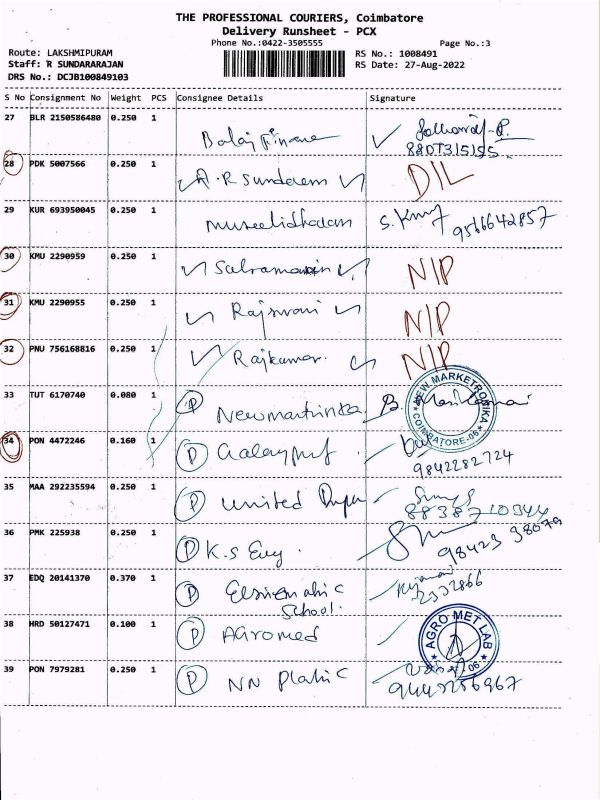 THE PROFESSIONAL COURIERS, Coimbatore
Delivery Runsheet - PCX
Phone No.:0422-3505555 Page No.:3
Route: LAKSHMIPURAM RS No.: 1008491
Staff: R SUNDARARAJAN RS Date: 27-Aug-2022
DRS No.: DCJB100849103
S No Consignment No Weight PCS Consignee Details Signature
27 BLR 2150586480 0.250 1
28 PDK 5007566 0.250 1 A.R Sundaram D/L
29 KUR 693950045 0.250 1 9566642857
30 KMU 2290959 0.250 1 N/P
31 KMU 2290955 0.250 1 N/P
32 PNU 756168816 0.250 1 Rajkumar. N/P
33 TUT 6170740 0.080 1 P NEW MARKETRONIKA COIMBATORE-06
34 PON 4472246 0.160 1 P 9842282724
35 MAA 292235594 0.250 1 P United
36 PMK 225938 0.250 1 P K.S 98423 38079
37 EDQ 20141370 0.370 1 P School. 2332866
38 HRD 50127471 0.100 1 P Agromed AGRO MET LAB
39 PON 7979281 0.250 1 P NN Plastic